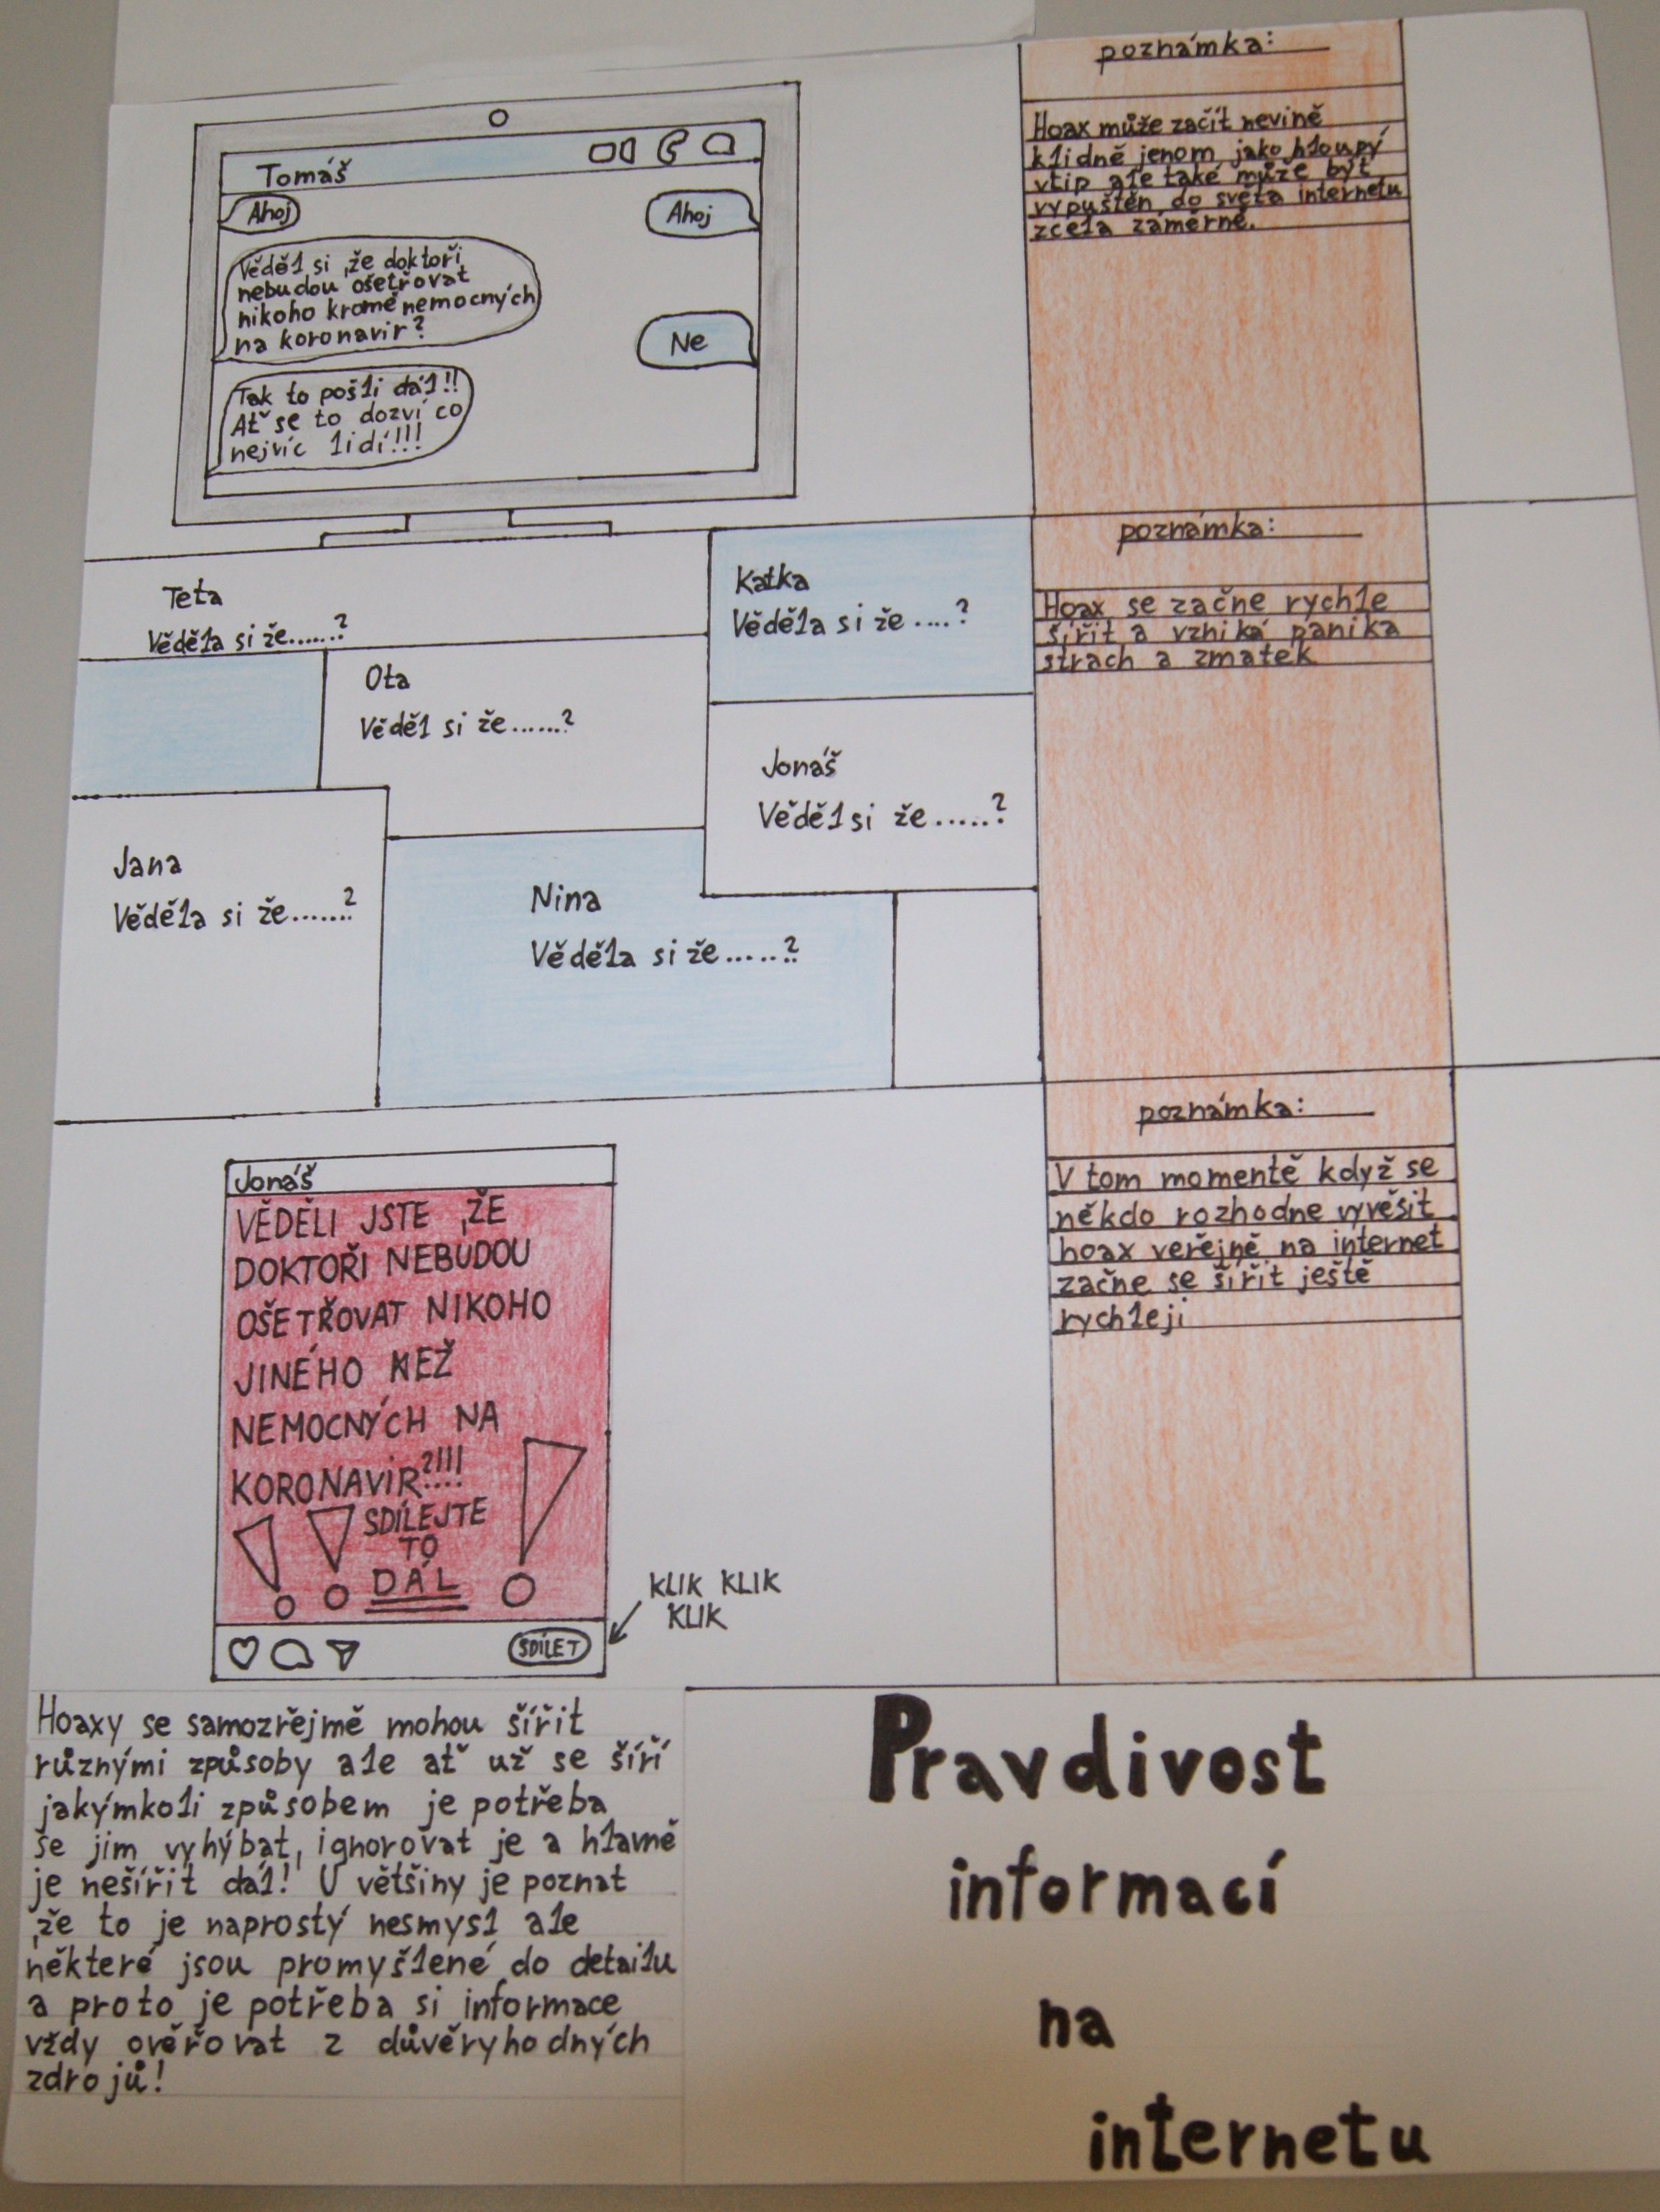 Tomáš
Ahoj
Ahoj
Věděl si ,že doktoři
nebudou ošetřovat
nikoho kromě nemocných
na koronavir?
Ne
Tak to pošli dál!!
Ať se to dozví co
nejvíc lidí!!!
poznámka:
Hoax může začít nevině
klidně jenom jako hloupý
vtip ale také může být
vypuštěn do světa internetu
zcela záměrně.
Teta
Věděla si že......?
Katka
Věděla si že ....?
Ota
Věděl si že......?
Jonáš
Věděl si že.....?
Jana
Věděla si že.......?
Nina
Věděla si že.....?
poznámka:
Hoax se začne rychle
šířit a vzniká panika
strach a zmatek
Jonáš
VĚDĚLI JSTE ,ŽE
DOKTOŘI NEBUDOU
OŠETŘOVAT NIKOHO
JINÉHO NEŽ
NEMOCNÝCH NA
KORONAVIR?!!!
SDÍLEJTE
TO
DÁL
SDÍLET
KLIK KLIK
KLIK
poznámka:
V tom momentě když se
někdo rozhodne vyvěsit
hoax veřejně na internet
začne se šířit ještě
rychleji
Hoaxy se samozřejmě mohou šířit
různými způsoby ale ať už se šíří
jakýmkoli způsobem je potřeba
se jim vyhýbat, ignorovat je a hlavně
je nešířit dál! U většiny je poznat
,že to je naprostý nesmysl ale
některé jsou promyšlené do detailu
a proto je potřeba si informace
vždy ověřovat z důvěryhodných
zdrojů!
Pravdivost
informací
na
internetu